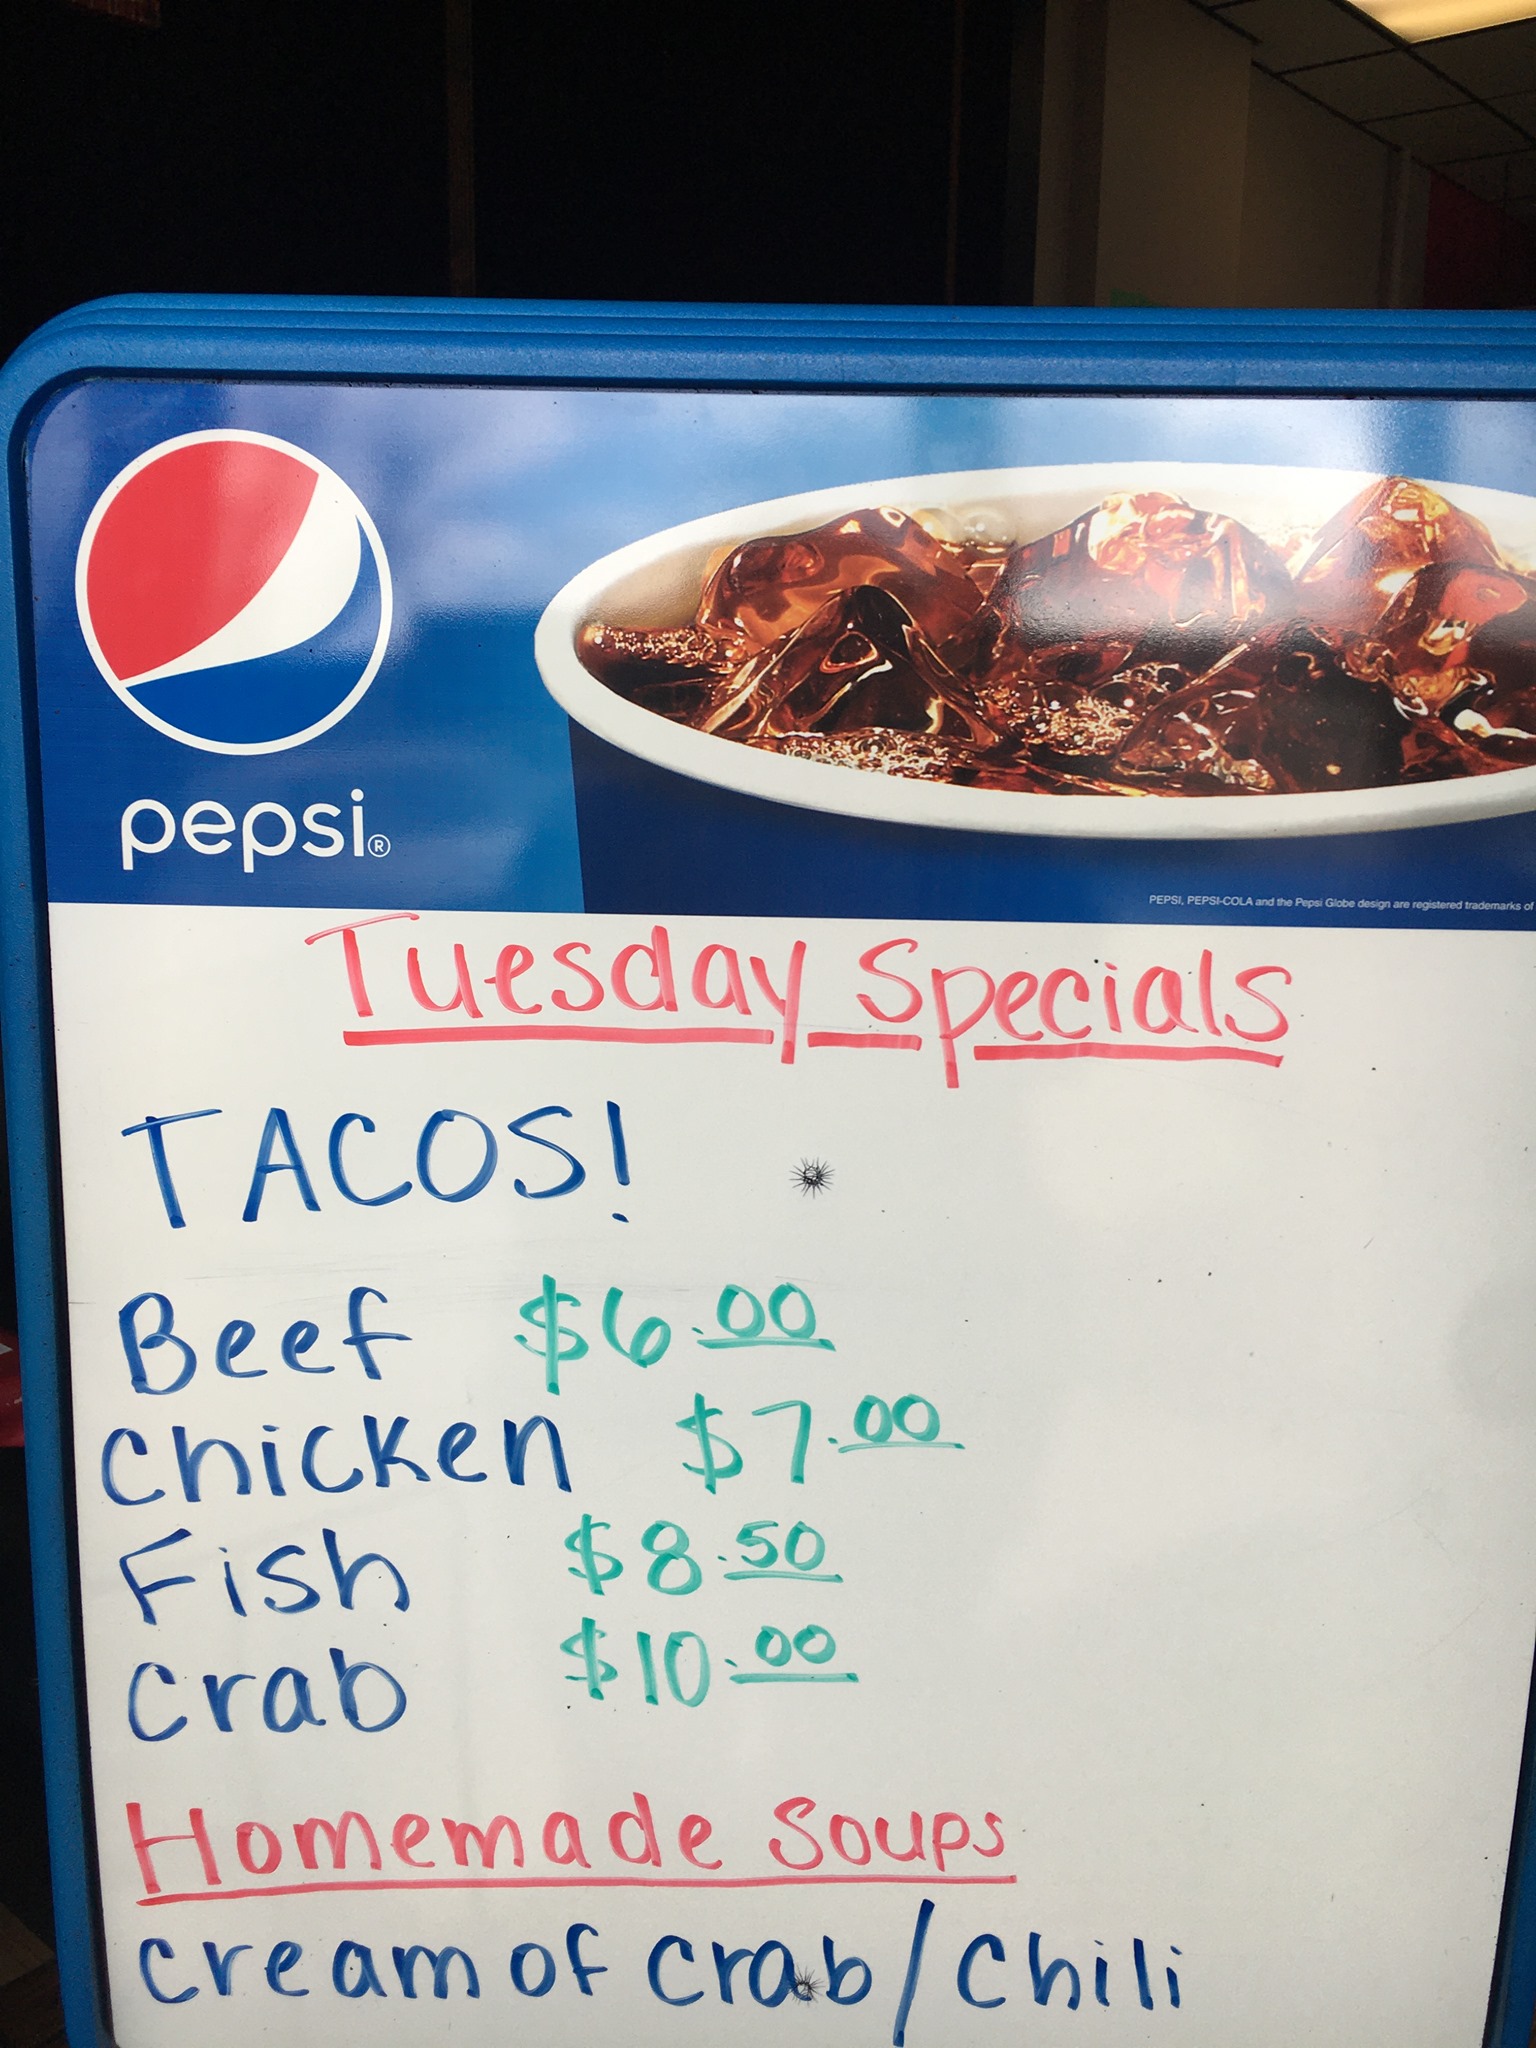 pepsi®
PEPSI, PEPSI-COLA and the Pepsi Globe design are registered trademarks of
Tuesday Specials
TACOS!
Beef $6.00
Chicken $7.00
Fish $8.50
Crab $10.00
Homemade Soups
Cream of Crab/Chili